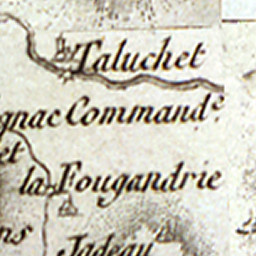 Taluchet
gnac Command.e
et
la Fougandrie
ns
Jadeau